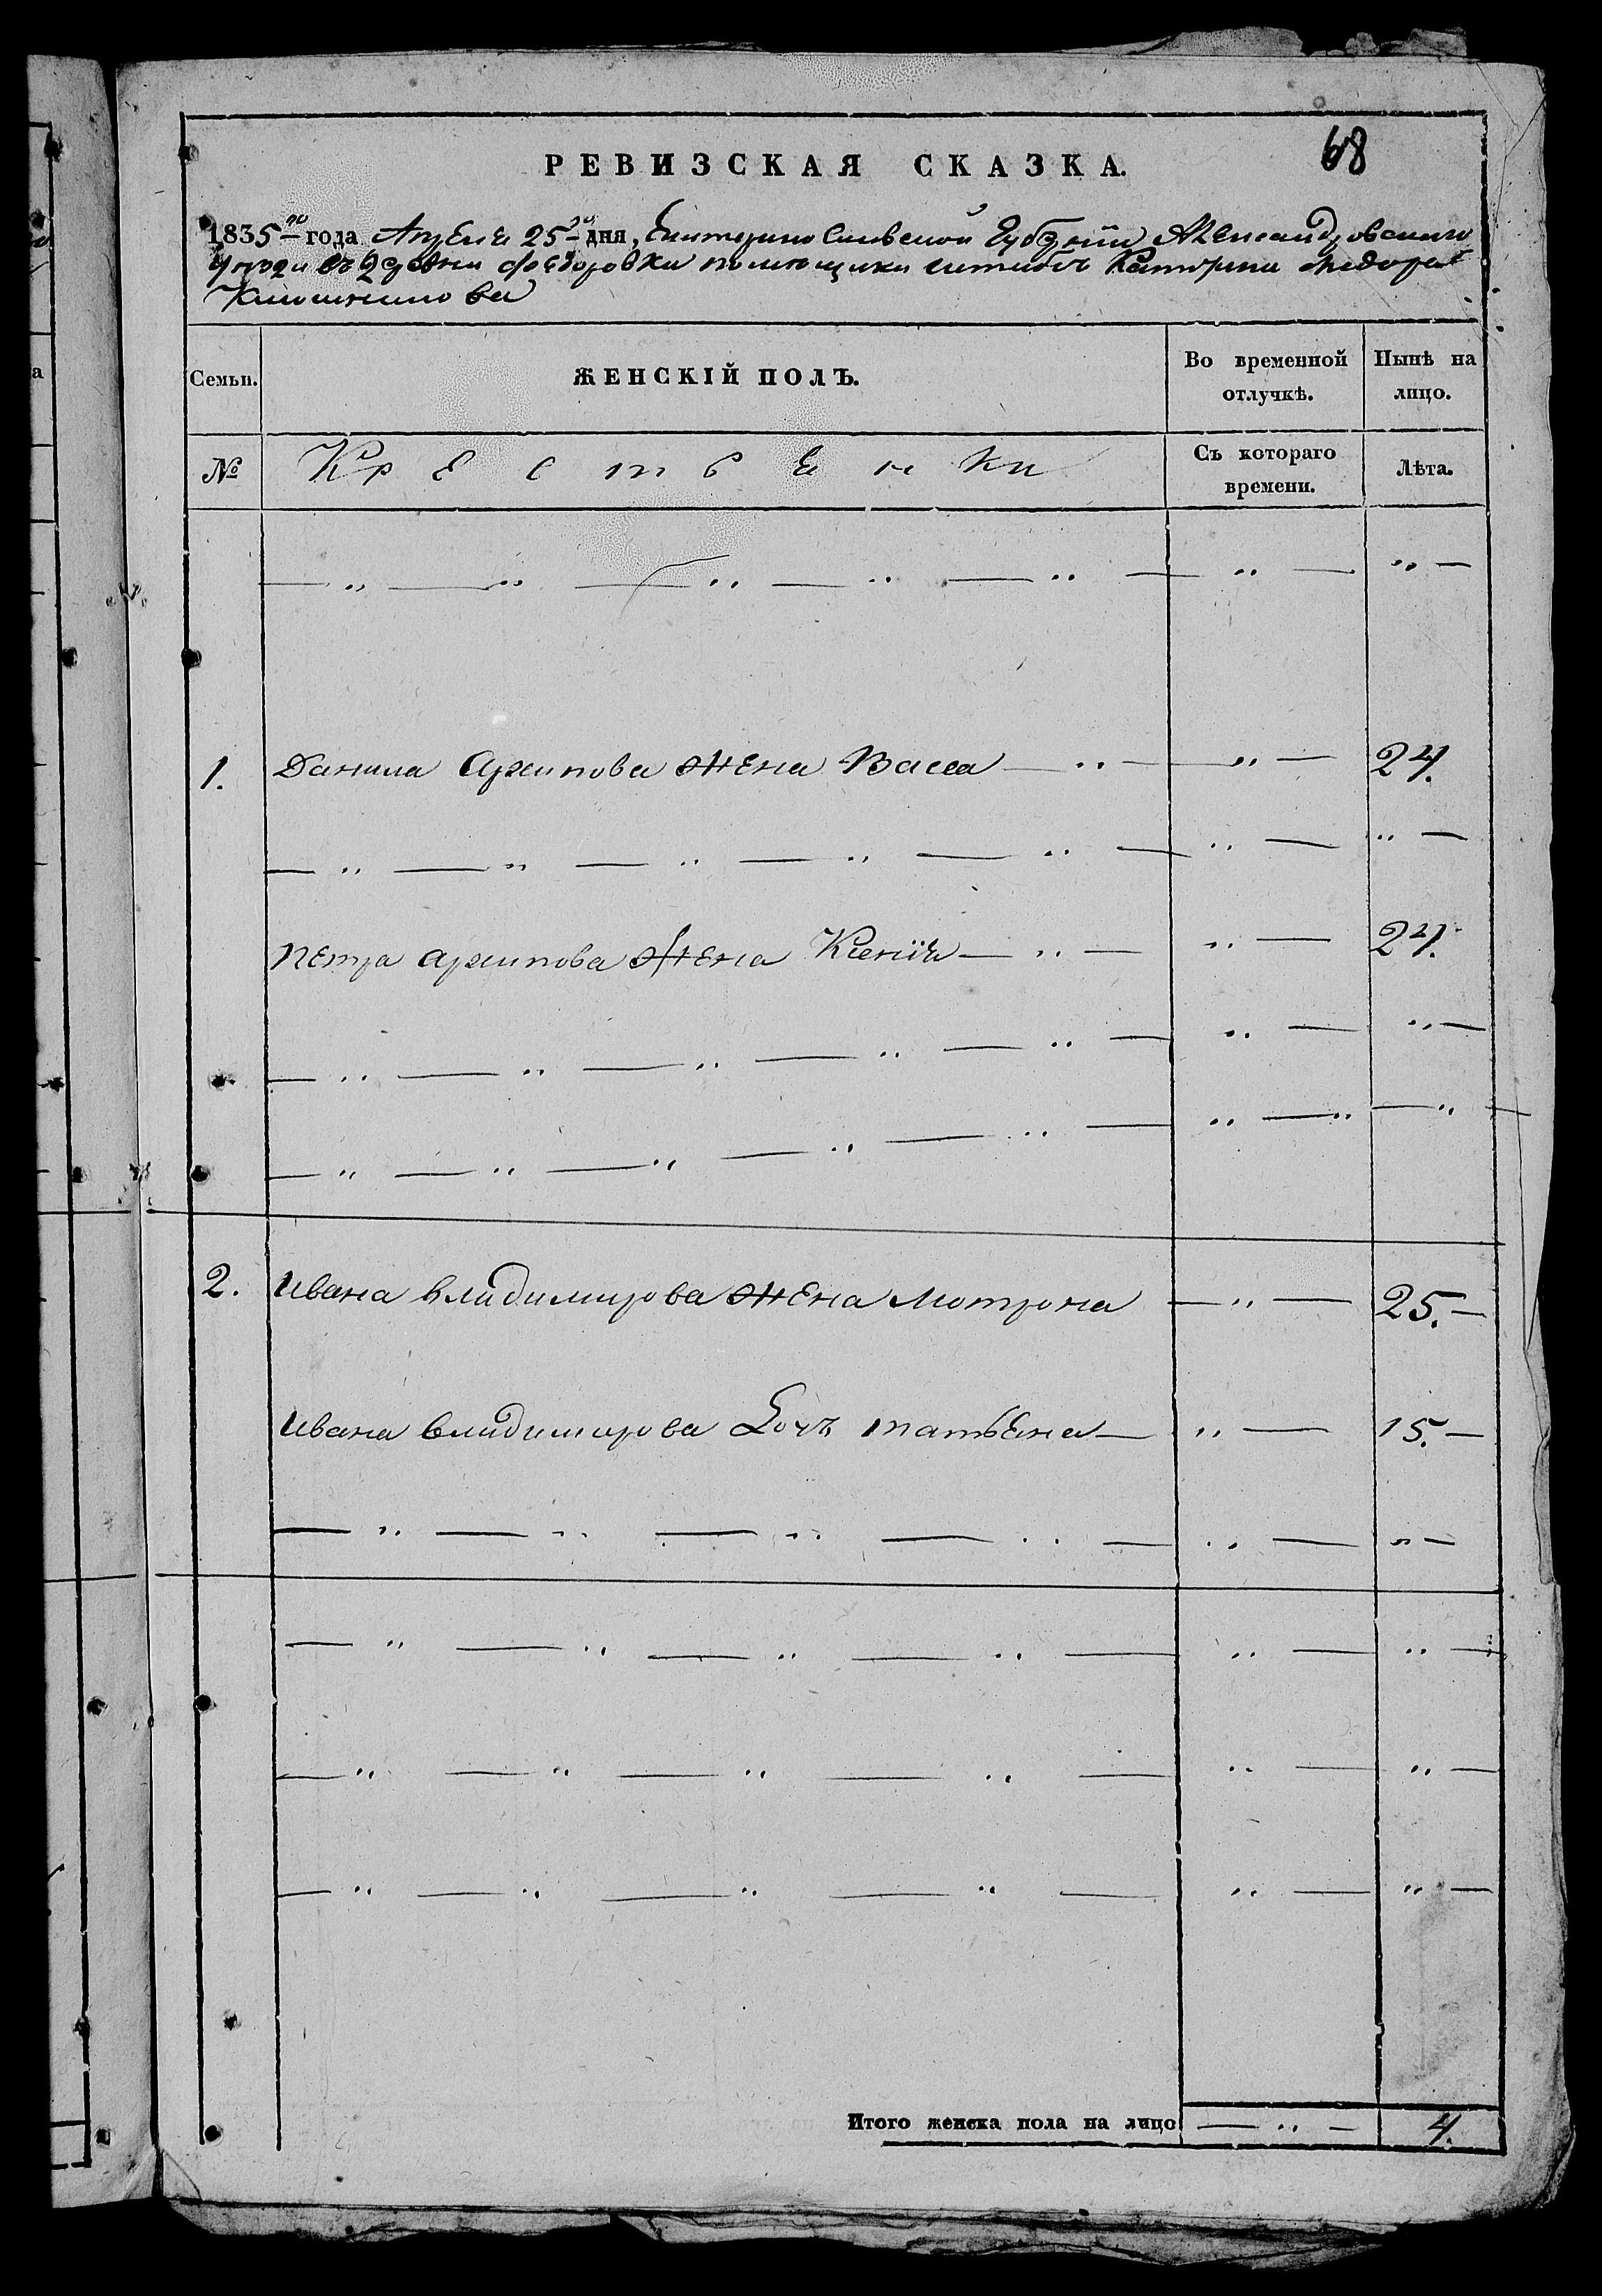 68
РЕВИЗСКАЯ СКАЗКА.
1835го года Апреля 25го дня, Екатеринославской Губернии Александровского
уезда деревни Федоровки помещика штабсъ Капитана Федора
Семьи. ЖЕНСКІЙ ПОЛЪ. Во временной отлучкѣ. Нынѣ на лицо.
№ Крестьянки Съ котораго времени. Лѣта.
1. Данила Архипова жена Васса — „ — „ — 24.
Петра Архипова жена Ксенія — „ — „ — 24.
2. Ивана Владимирова жена Мотрона — „ — 25. —
Ивана Владимирова Дочь Татьяна — „ — 15. —
Итого женска пола на лицо — „ — 4.